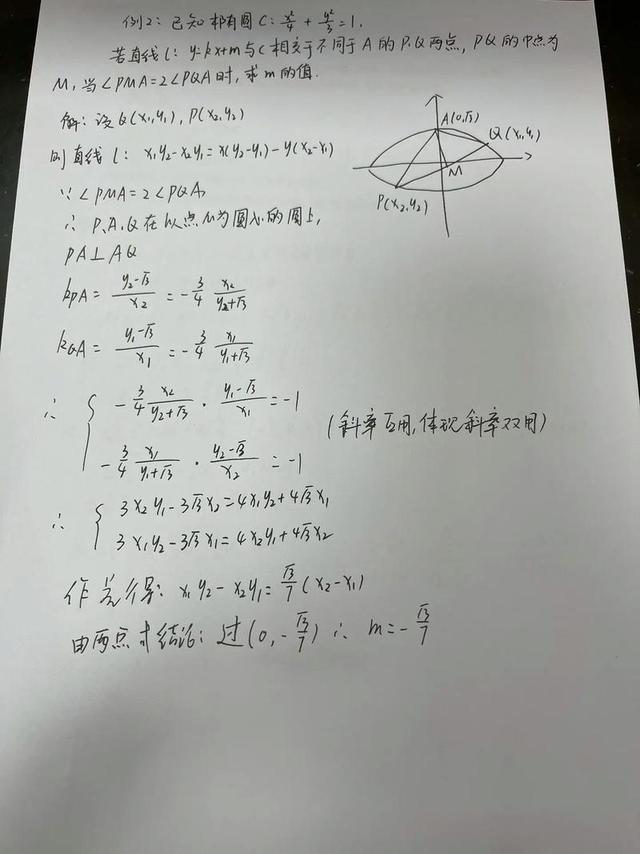 例2：已知椭圆C：x²/4 + y²/3 = 1.
若直线l：y=kx+m与C相交于不同于A的P.Q两点，PQ的中点为
M，当∠PMA=2∠PQA时，求m的值.
解：设Q(x₁,y₁), P(x₂,y₂)
则直线l： x₁y₂-x₂y₁=x(y₂-y₁)-y(x₂-x₁)
∵∠PMA=2∠PQA,
∴ P、A、Q在以点M为圆心的圆上,
PA⊥AQ
k_PA = (y₂-√3)/x₂ = -3/4 x₂/(y₂+√3)
k_QA = (y₁-√3)/x₁ = -3/4 x₁/(y₁+√3)
∴ { -3/4 x₂/(y₂+√3) · (y₁-√3)/x₁ = -1
-3/4 x₁/(y₁+√3) · (y₂-√3)/x₂ = -1
(斜率互用,体现斜率双用)
∴ { 3x₂y₁-3√3x₂=4x₁y₂+4√3x₁
3x₁y₂-3√3x₁=4x₂y₁+4√3x₂
作差得： x₁y₂-x₂y₁=√3/7(x₂-x₁)
由两点式结论：过(0,-√3/7) ∴ m=-√3/7
A(0,√3)
Q(x₁,y₁)
M
P(x₂,y₂)